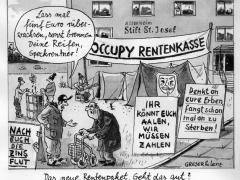 Lass mal
fünf Euro rüber-
wachsen, sonst brennen
Deine Reifen,
Speckrentner!
Altenheim
Stift St. Josef
OCCUPY RENTENKASSE
IHR
KÖNNT EUCH
AALEN,
WIR
MÜSSEN
ZAHLEN
Denkt an
eure Erben,
fangt schon
mal an zu
sterben!
NACH
UNS
DIE
ZINS
FLUT
GRESER & LENZ
Das neue Rentenpaket. Geht das gut?